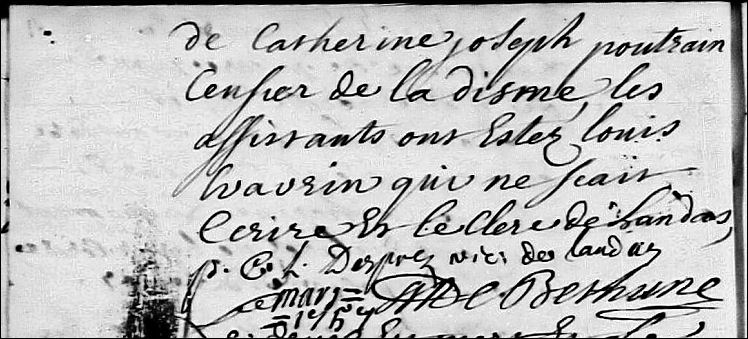 de Catherine joseph poutrain
Censier de la disme, les
assistants ont Estez louis
Wavrin qui ne scait
Ecrire Et le Clerc de Landas,
p. C. L. Desprez vice de landas
marq= De Bethune